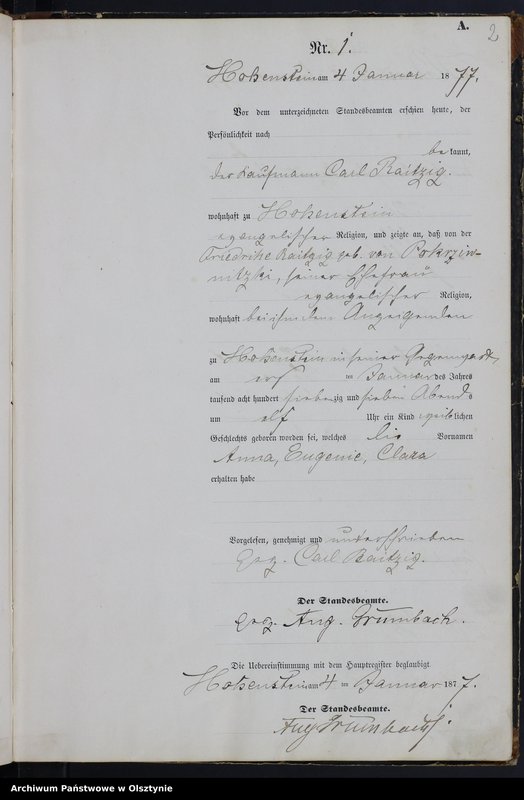 A.
2
Nr. 1.
Hohenstein am 4 Januar 1877.
Vor dem unterzeichneten Standesbeamten erschien heute, der
Persönlichkeit nach
bekannt,
der Kaufmann Carl Raitzig.
wohnhaft zu Hohenstein
evangelischer Religion, und zeigte an, daß von der
Friedrike Raitzig geb. von Pokrziw-
nitzki, seiner Ehefrau
evangelischer Religion,
wohnhaft bei ihm dem Anzeigenden
zu Hohenstein in seiner Gegenwart,
am ten Januar des Jahres
tausend acht hundert siebenzig und sieben Abends
um elf Uhr ein Kind weiblichen
Geschlechts geboren worden sei, welches die Vornamen
Anna, Eugenie, Clara
erhalten habe
Vorgelesen, genehmigt und unterschrieben
gez. Carl Raitzig.
Der Standesbeamte.
gez. Aug. Grumbach.
Die Uebereinstimmung mit dem Hauptregister beglaubigt
Hohenstein am 4 ten Januar 1877.
Der Standesbeamte.
Aug Grumbach
Archiwum Państwowe w Olsztynie